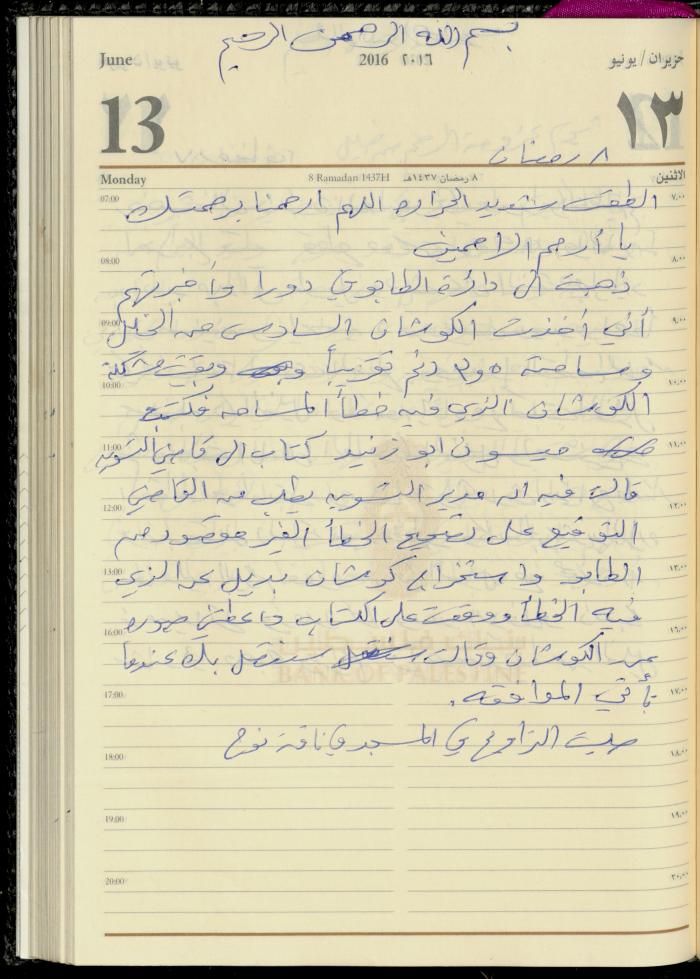 بسم الله الرحمن الرحيم
June 2016 ٢٠١٦ حزيران / يونيو
13 ١٣
٨ رمضان
Monday 8 Ramadan 1437H ٨ رمضان ١٤٣٧هـ الاثنين
07:00 الطقس شديد الحراره اللهم ارحمنا برحمتك ٧:٠٠
يا أرحم الراحمين
08:00 ٨:٠٠
ذهبت الى دائرة الطابو في دورا وأخبرتهم
09:00 أني أخذت الكوشان السادس من الخلل ٩:٠٠
ومساحته ٣٫٥ دنم تقريباً وبقيت مشكلة
10:00 ١٠:٠٠
الكوشان الذي فيه خطأ المساحه فكتبت
11:00 ميسون ابو زنيد كتاب الى قاضي التسويه ١١:٠٠
قالت فيه ان مدير التسويه يطلب من القاضي
12:00 ١٢:٠٠
التوقيع على تصحيح الخطأ الغير مقصود من
13:00 الطابو واستخراج كوشان بديل عن الذي ١٣:٠٠
فيه الخطأ ووقعت على الكتاب واعطتني صوره
16:00 ١٦:٠٠
عن الكوشان وقالت سنتصل بك عندما
BANK OF PALESTINE
17:00 تأتي الموافقه. ١٧:٠٠
صليت التراويح في المسجد في ناقة نوح
18:00 ١٨:٠٠
19:00 ١٩:٠٠
20:00 ٢٠:٠٠